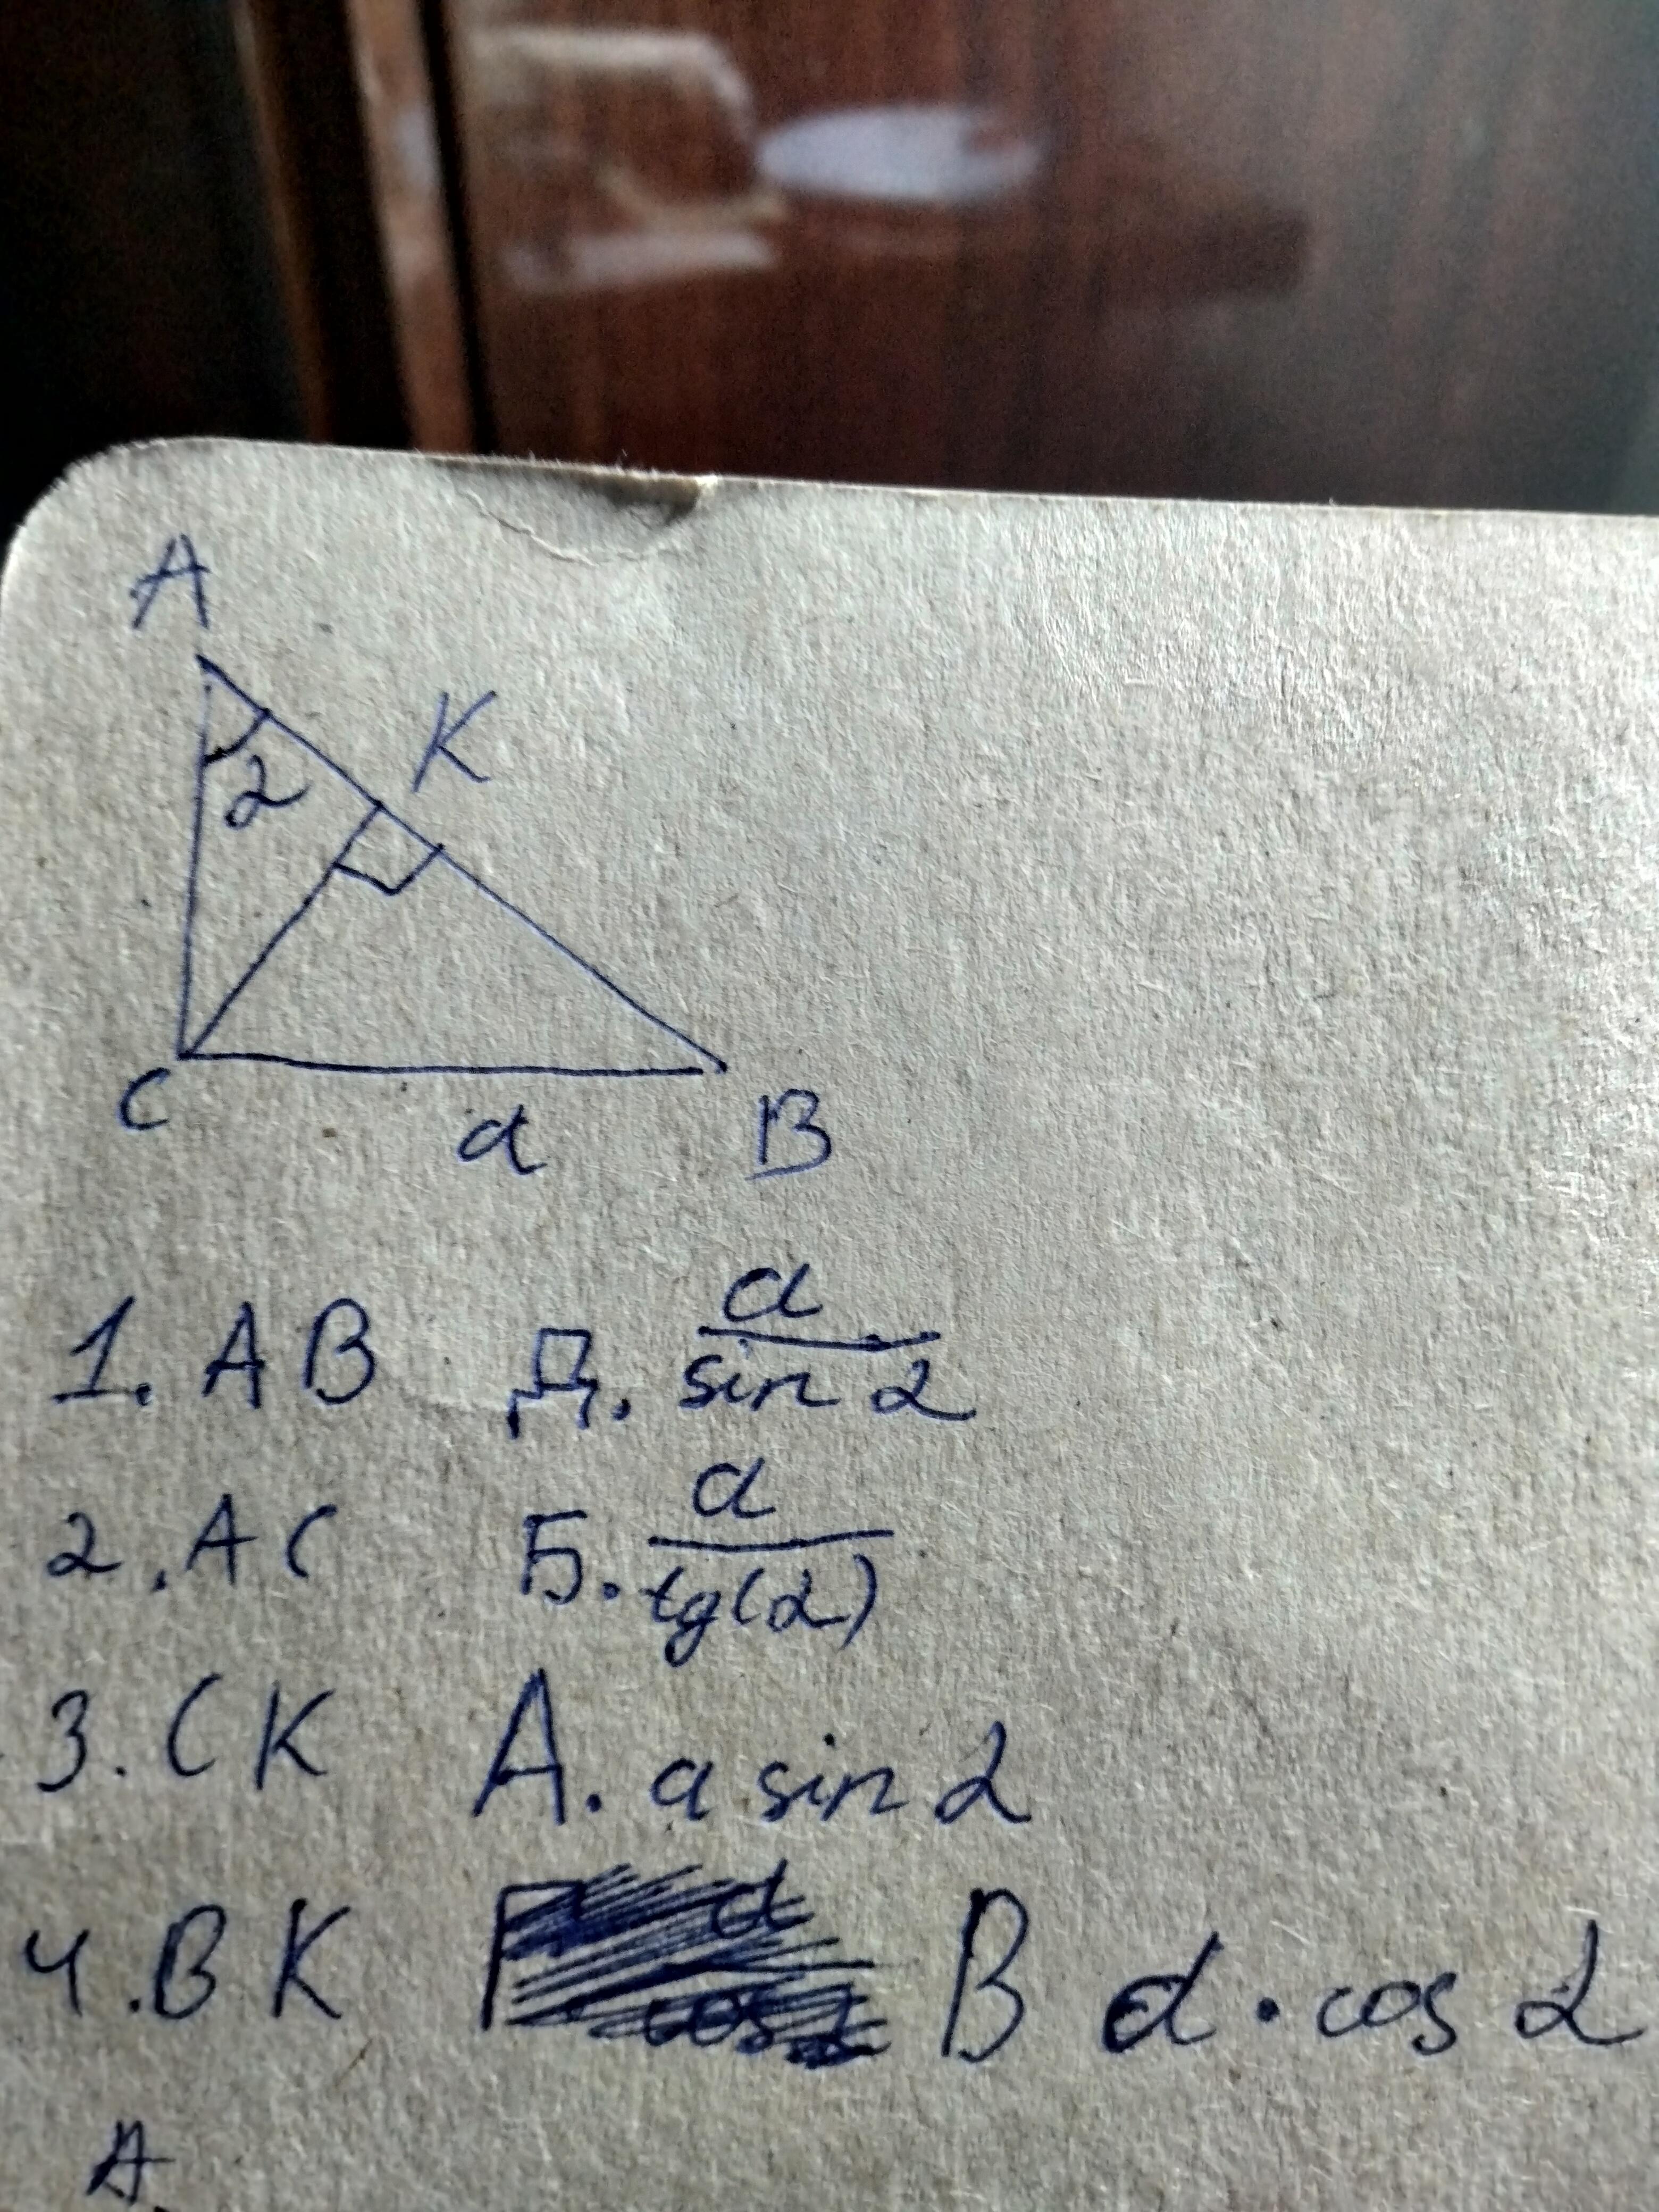 A
K
α
C
a
B
1. AB Д. a/sin α
2. AC Б. a/tg(α)
3. CK A. a sin α
4. BK B a · cos α
A.